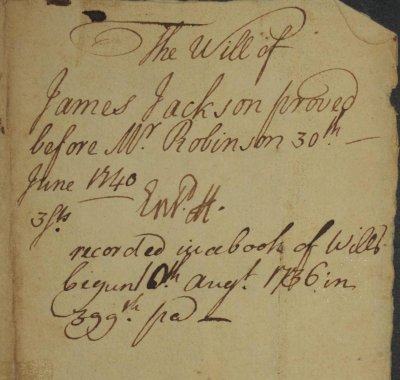 The Will of
James Jackson proved
before Mr. Robinson 30th
June 1740
3 sh. Entd. H.
recorded in a book of Wills
begun 10th augt. 1736. in
399th pa